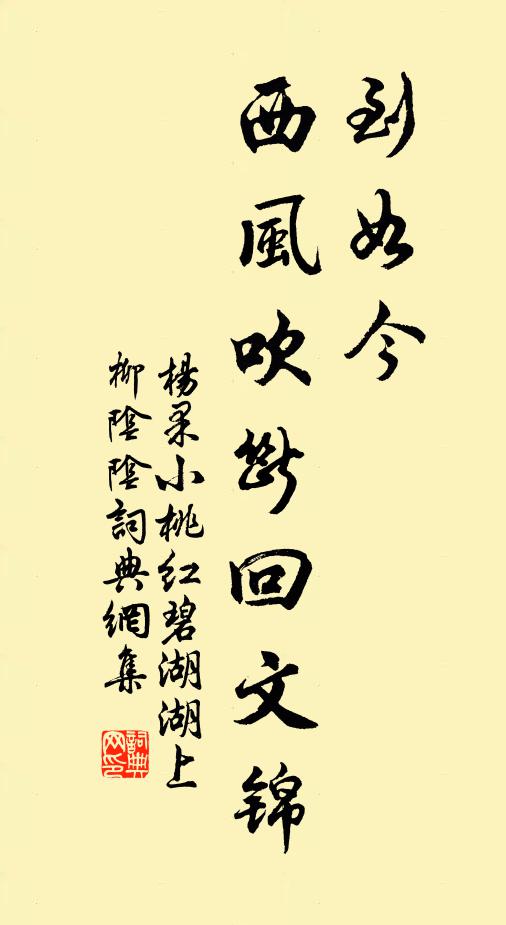 到如今
西風吹斷回文錦
楊果小桃紅碧湖湖上
柳陰陰詞典網集
詞典
网印